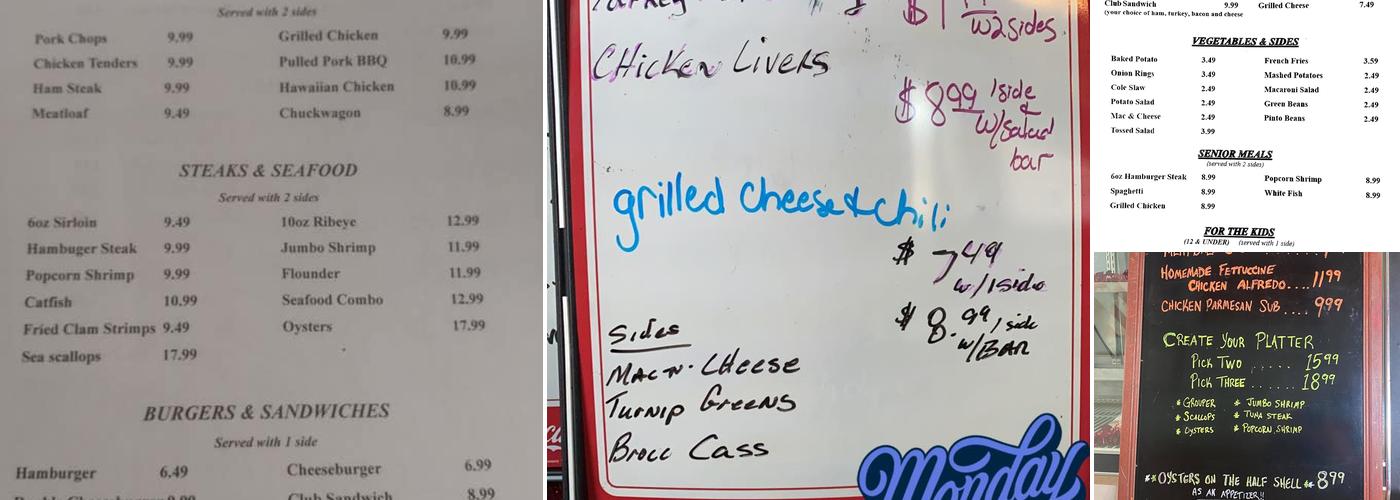 Served with 2 sides
Pork Chops 9.99 Grilled Chicken 9.99
Chicken Tenders 9.99 Pulled Pork BBQ 10.99
Ham Steak 9.99 Hawaiian Chicken 10.99
Meatloaf 9.49 Chuckwagon 8.99
STEAKS & SEAFOOD
Served with 2 sides
6oz Sirloin 9.49 10oz Ribeye 12.99
Hambuger Steak 9.99 Jumbo Shrimp 11.99
Popcorn Shrimp 9.99 Flounder 11.99
Catfish 10.99 Seafood Combo 12.99
Fried Clam Strimps 9.49 Oysters 17.99
Sea scallops 17.99
BURGERS & SANDWICHES
Served with 1 side
Hamburger 6.49 Cheeseburger 6.99
Club Sandwich 8.99
w2sides
CHicken Livers
$8.99 1side
& w/salad
bar
grilled cheese & chili
$ 7.49
w/1side
$ 8.99 1 side
w/BAR
Sides
Mac N. CHeese
Turnip Greens
Brocc Cass
Monday
Club Sandwich 9.99 Grilled Cheese 7.49
(your choice of ham, turkey, bacon and cheese
VEGETABLES & SIDES
Baked Potato 3.49 French Fries 3.59
Onion Rings 3.49 Mashed Potatoes 2.49
Cole Slaw 2.49 Macaroni Salad 2.49
Potato Salad 2.49 Green Beans 2.49
Mac & Cheese 2.49 Pinto Beans 2.49
Tossed Salad 3.99
SENIOR MEALS
(served with 2 sides)
6oz Hamburger Steak 8.99 Popcorn Shrimp 8.99
Spaghetti 8.99 White Fish 8.99
Grilled Chicken 8.99
FOR THE KIDS
(12 & UNDER) (served with 1 side)
HOMEMADE FETTUCINE
CHICKEN ALFREDO.... 11.99
CHICKEN PARMESAN SUB .... 9.99
CREATE YOUR PLATTER
PICK TWO ..... 15.99
PICK THREE ...... 18.99
* GROUPER * JUMBO SHRIMP
* SCALLOPS * TUNA STEAK
* OYSTERS * POPCORN SHRIMP
**OYSTERS ON THE HALF SHELL** 8.99
AS AN APPETIZER!!